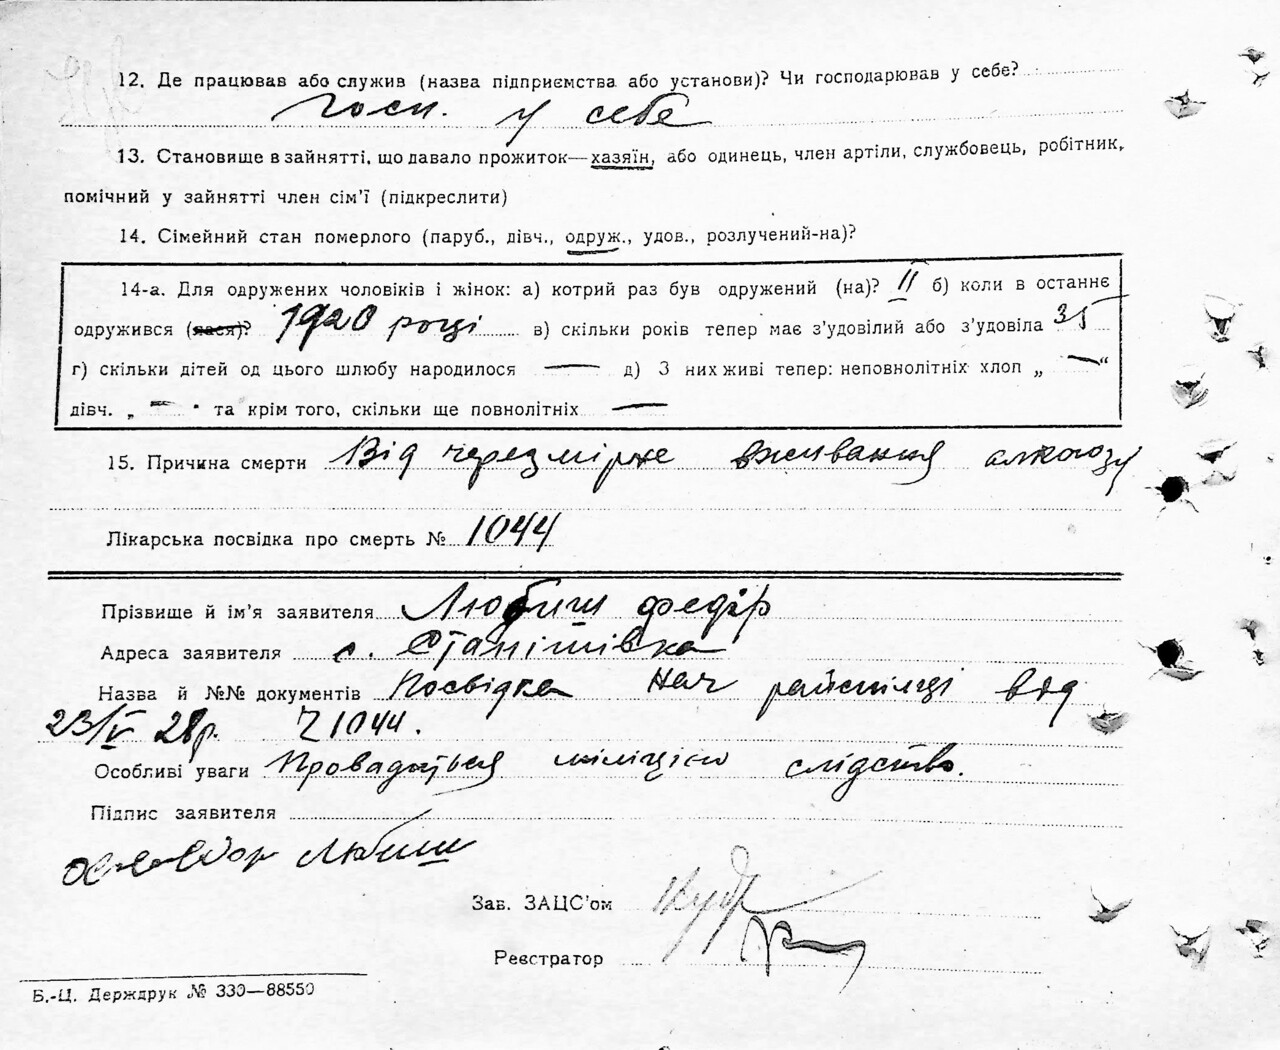 12. Де працював або служив (назва підприємства або установи)? Чи господарював у себе?
Госп. у себе
13. Становище в зайнятті, що давало прожиток—хазяїн, або одинець, член артіли, службовець, робітник,
помічний у зайнятті член сім'ї (підкреслити)
14. Сімейний стан померлого (паруб., дівч., одруж., удов., розлучений-на)?
14-а. Для одружених чоловіків і жінок: а) котрий раз був одружений (на)? II б) коли в останнє
одружився (лася)? 1920 році в) скільки років тепер має з'удовілий або з'удовіла 35
г) скільки дітей од цього шлюбу народилося — д) З них живі тепер: неповнолітніх хлоп „ — “
дівч. „ — " та крім того, скільки ще повнолітніх —
15. Причина смерти Від черезмірне вживання алкоголю
Лікарська посвідка про смерть № 1044
Прізвище й ім'я заявителя Любиш Федір
Адреса заявителя с. Станішівка
Назва й №№ документів Посвідка Нач райміліції від
23/V 28р. Ч 1044.
Особливі уваги Провадиться міліцією слідство.
Підпис заявителя
Любиш
Зав. ЗАЦС'ом
Реєстратор
Б.-Ц. Держдрук № 330—88550